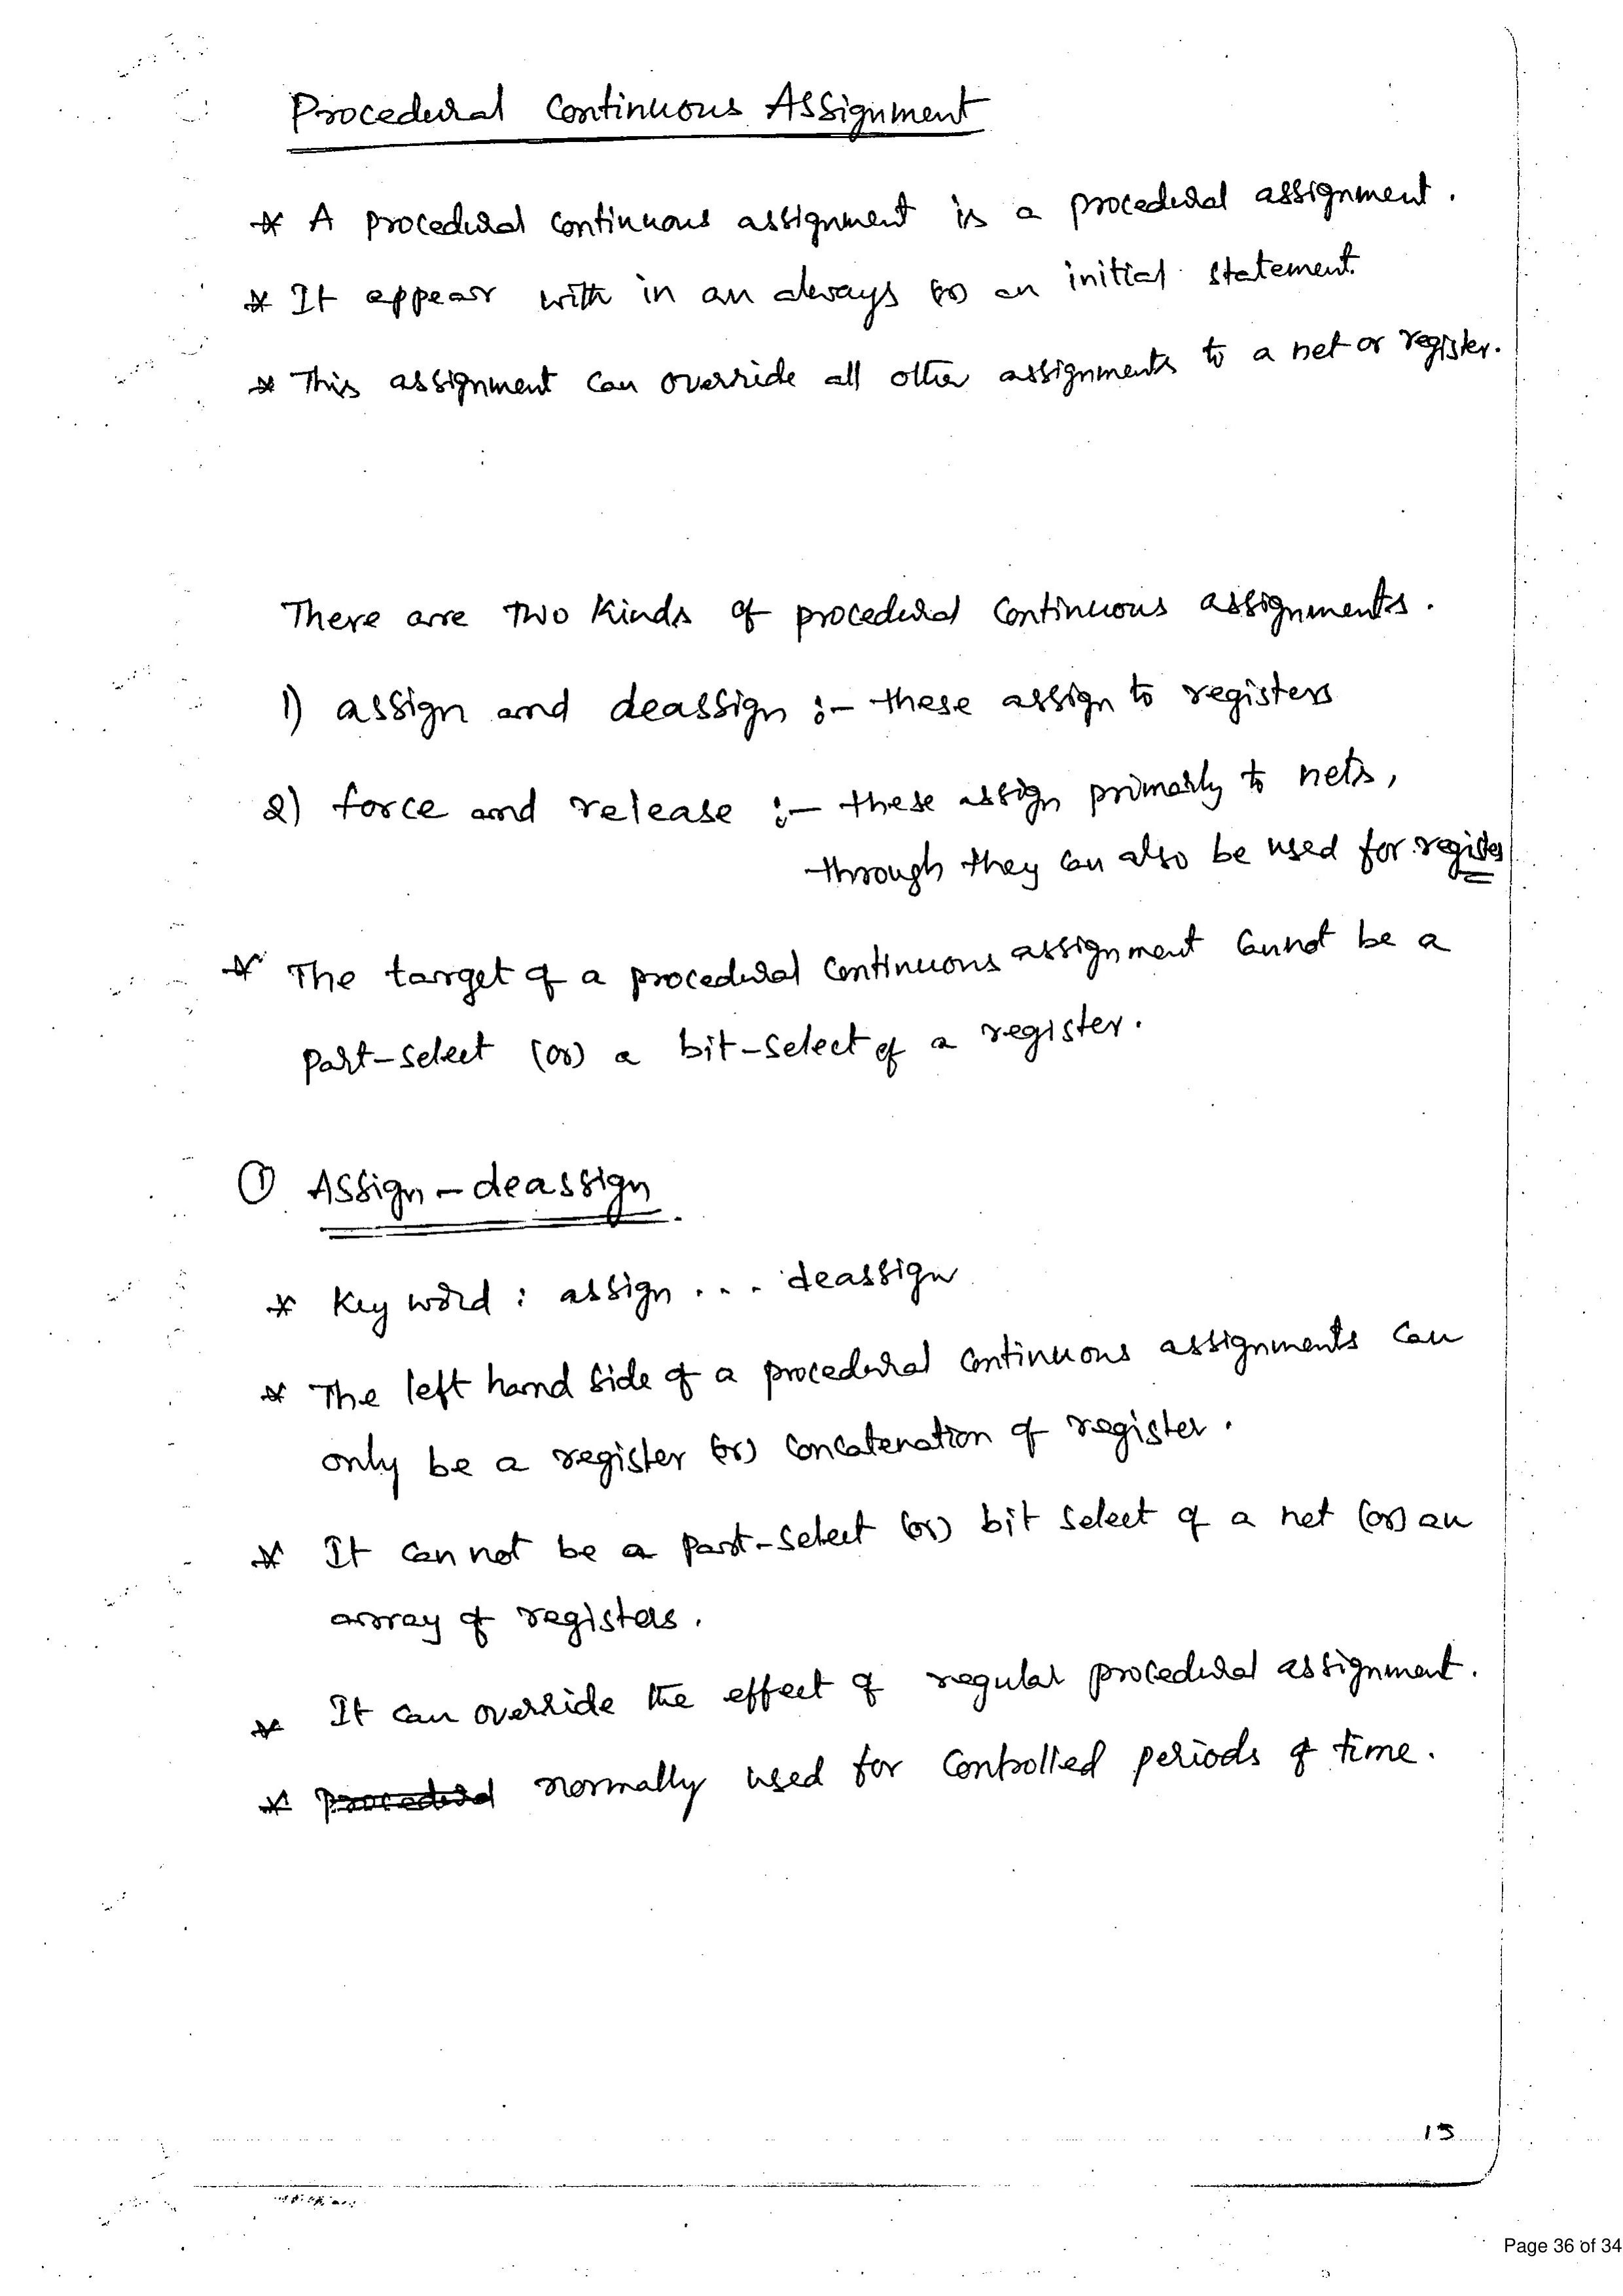 Procedural Continuous Assignment
* A procedural continuous assignment is a procedural assignment.
* It appear with in an always (or) an initial statement.
* This assignment can override all other assignments to a net or register.
There are two kinds of procedural continuous assignments.
1) assign and deassign :- these assign to registers
2) force and release :- these assign primarily to nets,
through they can also be used for register
* The target of a procedural continuous assignment cannot be a
part-select (or) a bit-select of a register.
① Assign-deassign
* Key word : assign ... deassign
* The left hand side of a procedural continuous assignments can
only be a register (or) concatenation of register.
* It can not be a part-select (or) bit select of a net (or) an
array of registers.
* It can override the effect of regular procedural assignment.
* procedural normally used for controlled periods of time.
15
Page 36 of 34